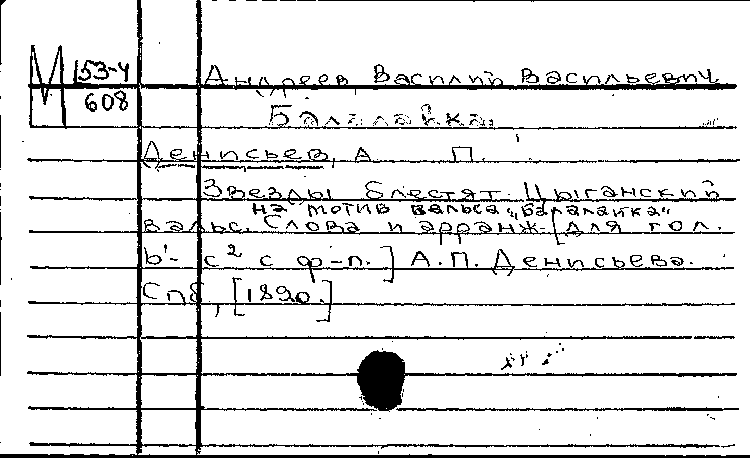 М 153-4
608
Андреев, Василий Васильевич
Балалайка.
Денисьев, А. П.
Звезды блестят. Цыганский
на мотив вальса "Балалайка"
вальс. Слова и арранж. [для гол.
b¹- c² с ф-п.] А.П. Денисьева.
Спб, [1890.]